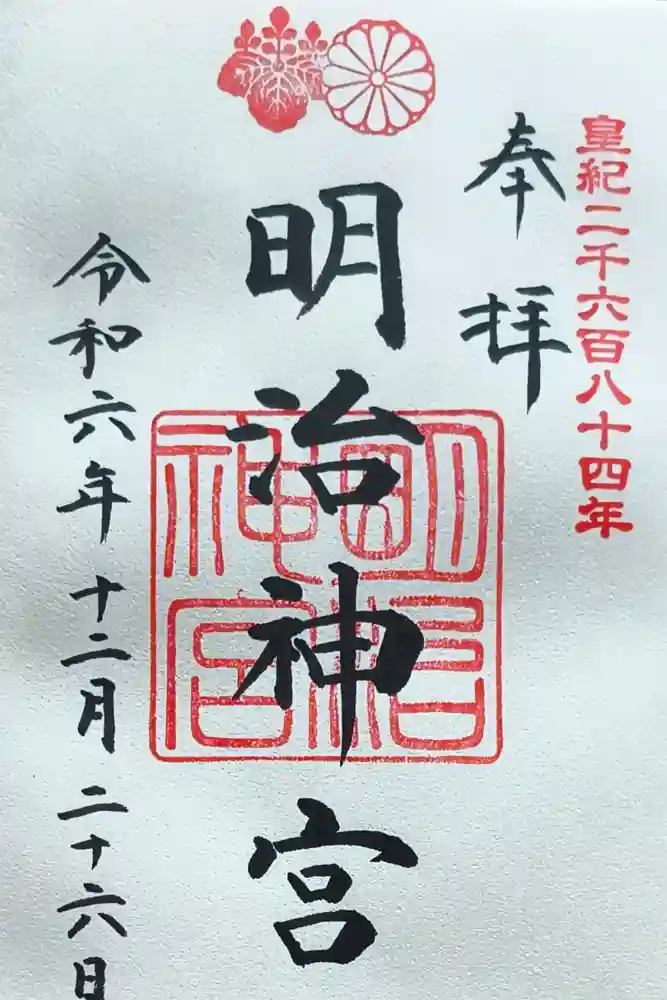 皇紀二千六百八十四年
奉拝
明治神宮
明治神宮
令和六年十二月二十六日